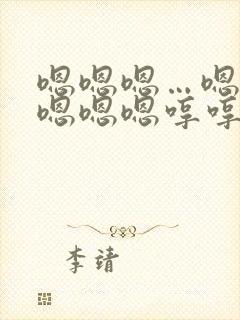 嗯嗯嗯…嗯
嗯嗯嗯哼哼
李靖